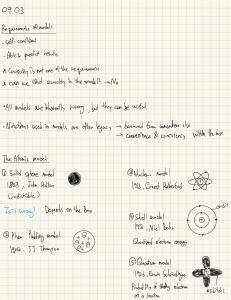 09.03
Requirements of models
- Self-confident
- Able to predict results
* Causality is not one of the requirements
* Can we find causality in the model? → No
• All models are inherently wrong, but they can be useful
• Notations used in models are often legacy → borrowed from somewhere else
→ convenience & consistency within the
The Atomic model
① Solid sphere model
1803, John Dalton
(indivisible)
Is it wrong? Depends on the
② Plum Pudding model
1904, J.J Thompson
③ Nuclear model
1911, Ernest Rutherford
④ Shell model
1913, Niels Bohr
Quantized electron energy
orbit
⑤ Quantum model
1926, Erwin Schrödinger
Probability of finding electron
at a location
orbitals